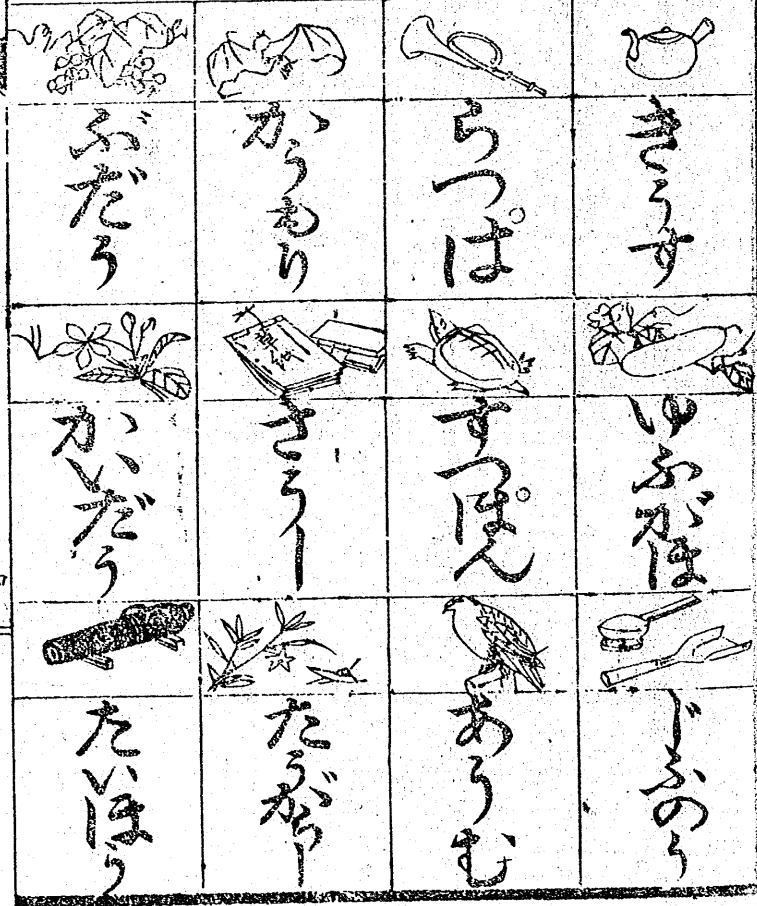 きうす
らつぱ
かうもり
ぶだう
ゆふがほ
すつぽん
草紙
さうし
かいだう
じふのう
あうむ
たうがらし
たいほう